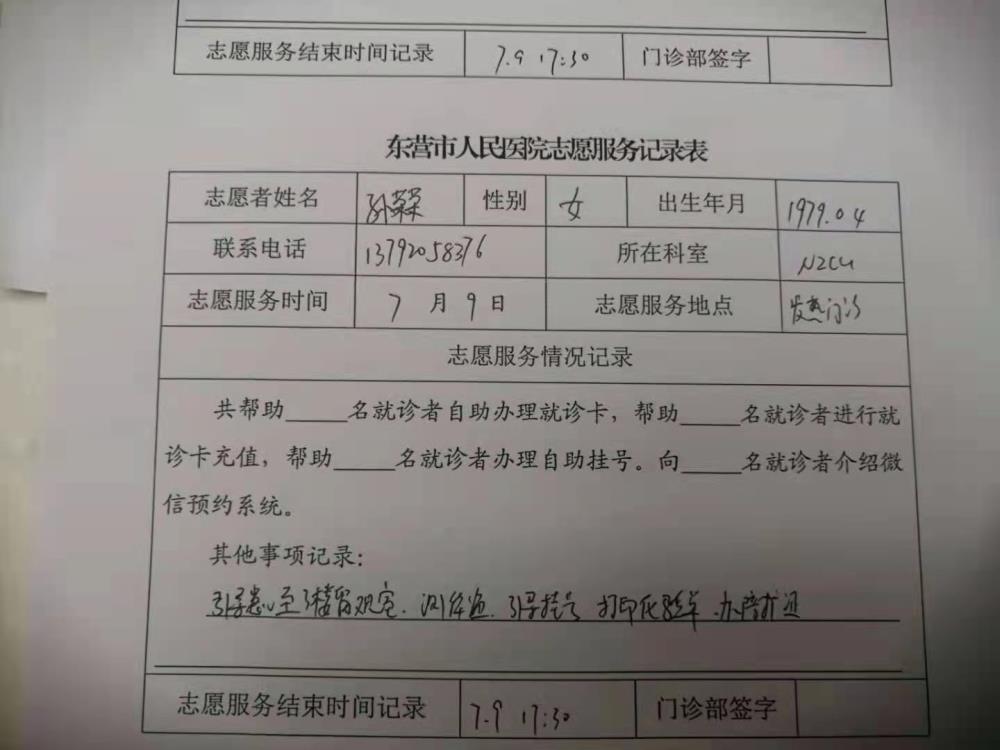 志愿服务结束时间记录 7.9 17:30 门诊部签字
东营市人民医院志愿服务记录表
志愿者姓名 孙荣荣 性别 女 出生年月 1979.04
联系电话 13792058376 所在科室
志愿服务时间 7月9日 志愿服务地点 发热门诊
志愿服务情况记录
共帮助_____名就诊者自助办理就诊卡，帮助_____名就诊者进行就
诊卡充值，帮助_____名就诊者办理自助挂号。向_____名就诊者介绍微
信预约系统。
其他事项记录：
引导患 至 留观室、测体温、引导挂号 打印化验单
志愿服务结束时间记录 7.9 17:30 门诊部签字